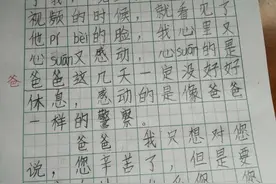 视频的时候，就看见了
他pí bèi的脸，我心里又
心suān又感动，心suān的是
爸爸这几天一定没好好
休息，感动的是像爸爸
一样的警察。
爸爸，我只想对您
说，您辛苦了，但是要
爸